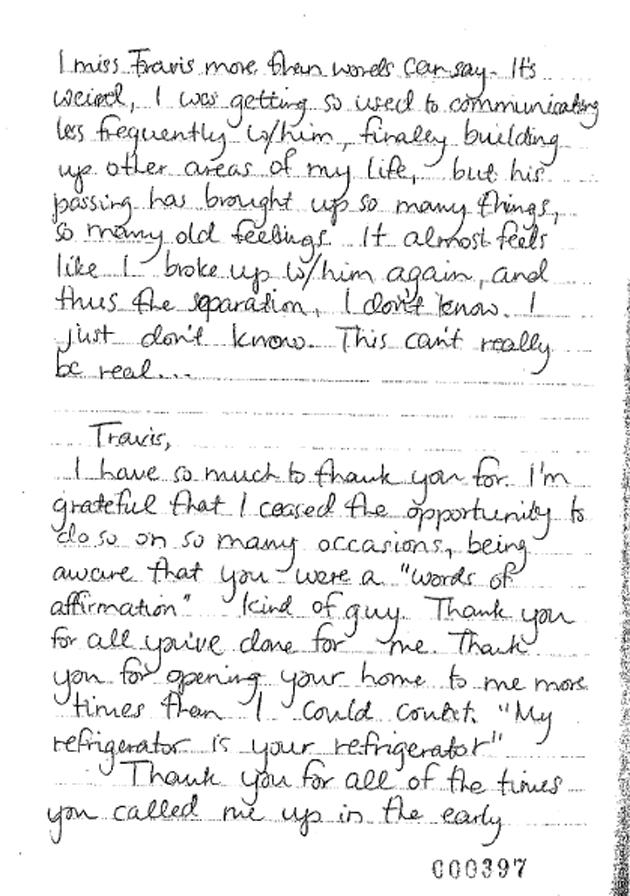 I miss Travis more than words can say. It's
weird, I was getting so used to communicating
less frequently w/him, finally building
up other areas of my life, but his
passing has brought up so many things,
so many old feelings. It almost feels
like I broke up w/him again, and
thus the separation, I don't know. I
just don't know. This can't really
be real...
Travis,
I have so much to thank you for. I'm
grateful that I ceased the opportunity to
do so on so many occasions, being
aware that you were a "words of
affirmation" kind of guy. Thank you
for all you've done for me. Thank
you for opening your home to me more
times than I could count. "My
refrigerator is your refrigerator"
Thank you for all of the times
you called me up in the early
000397